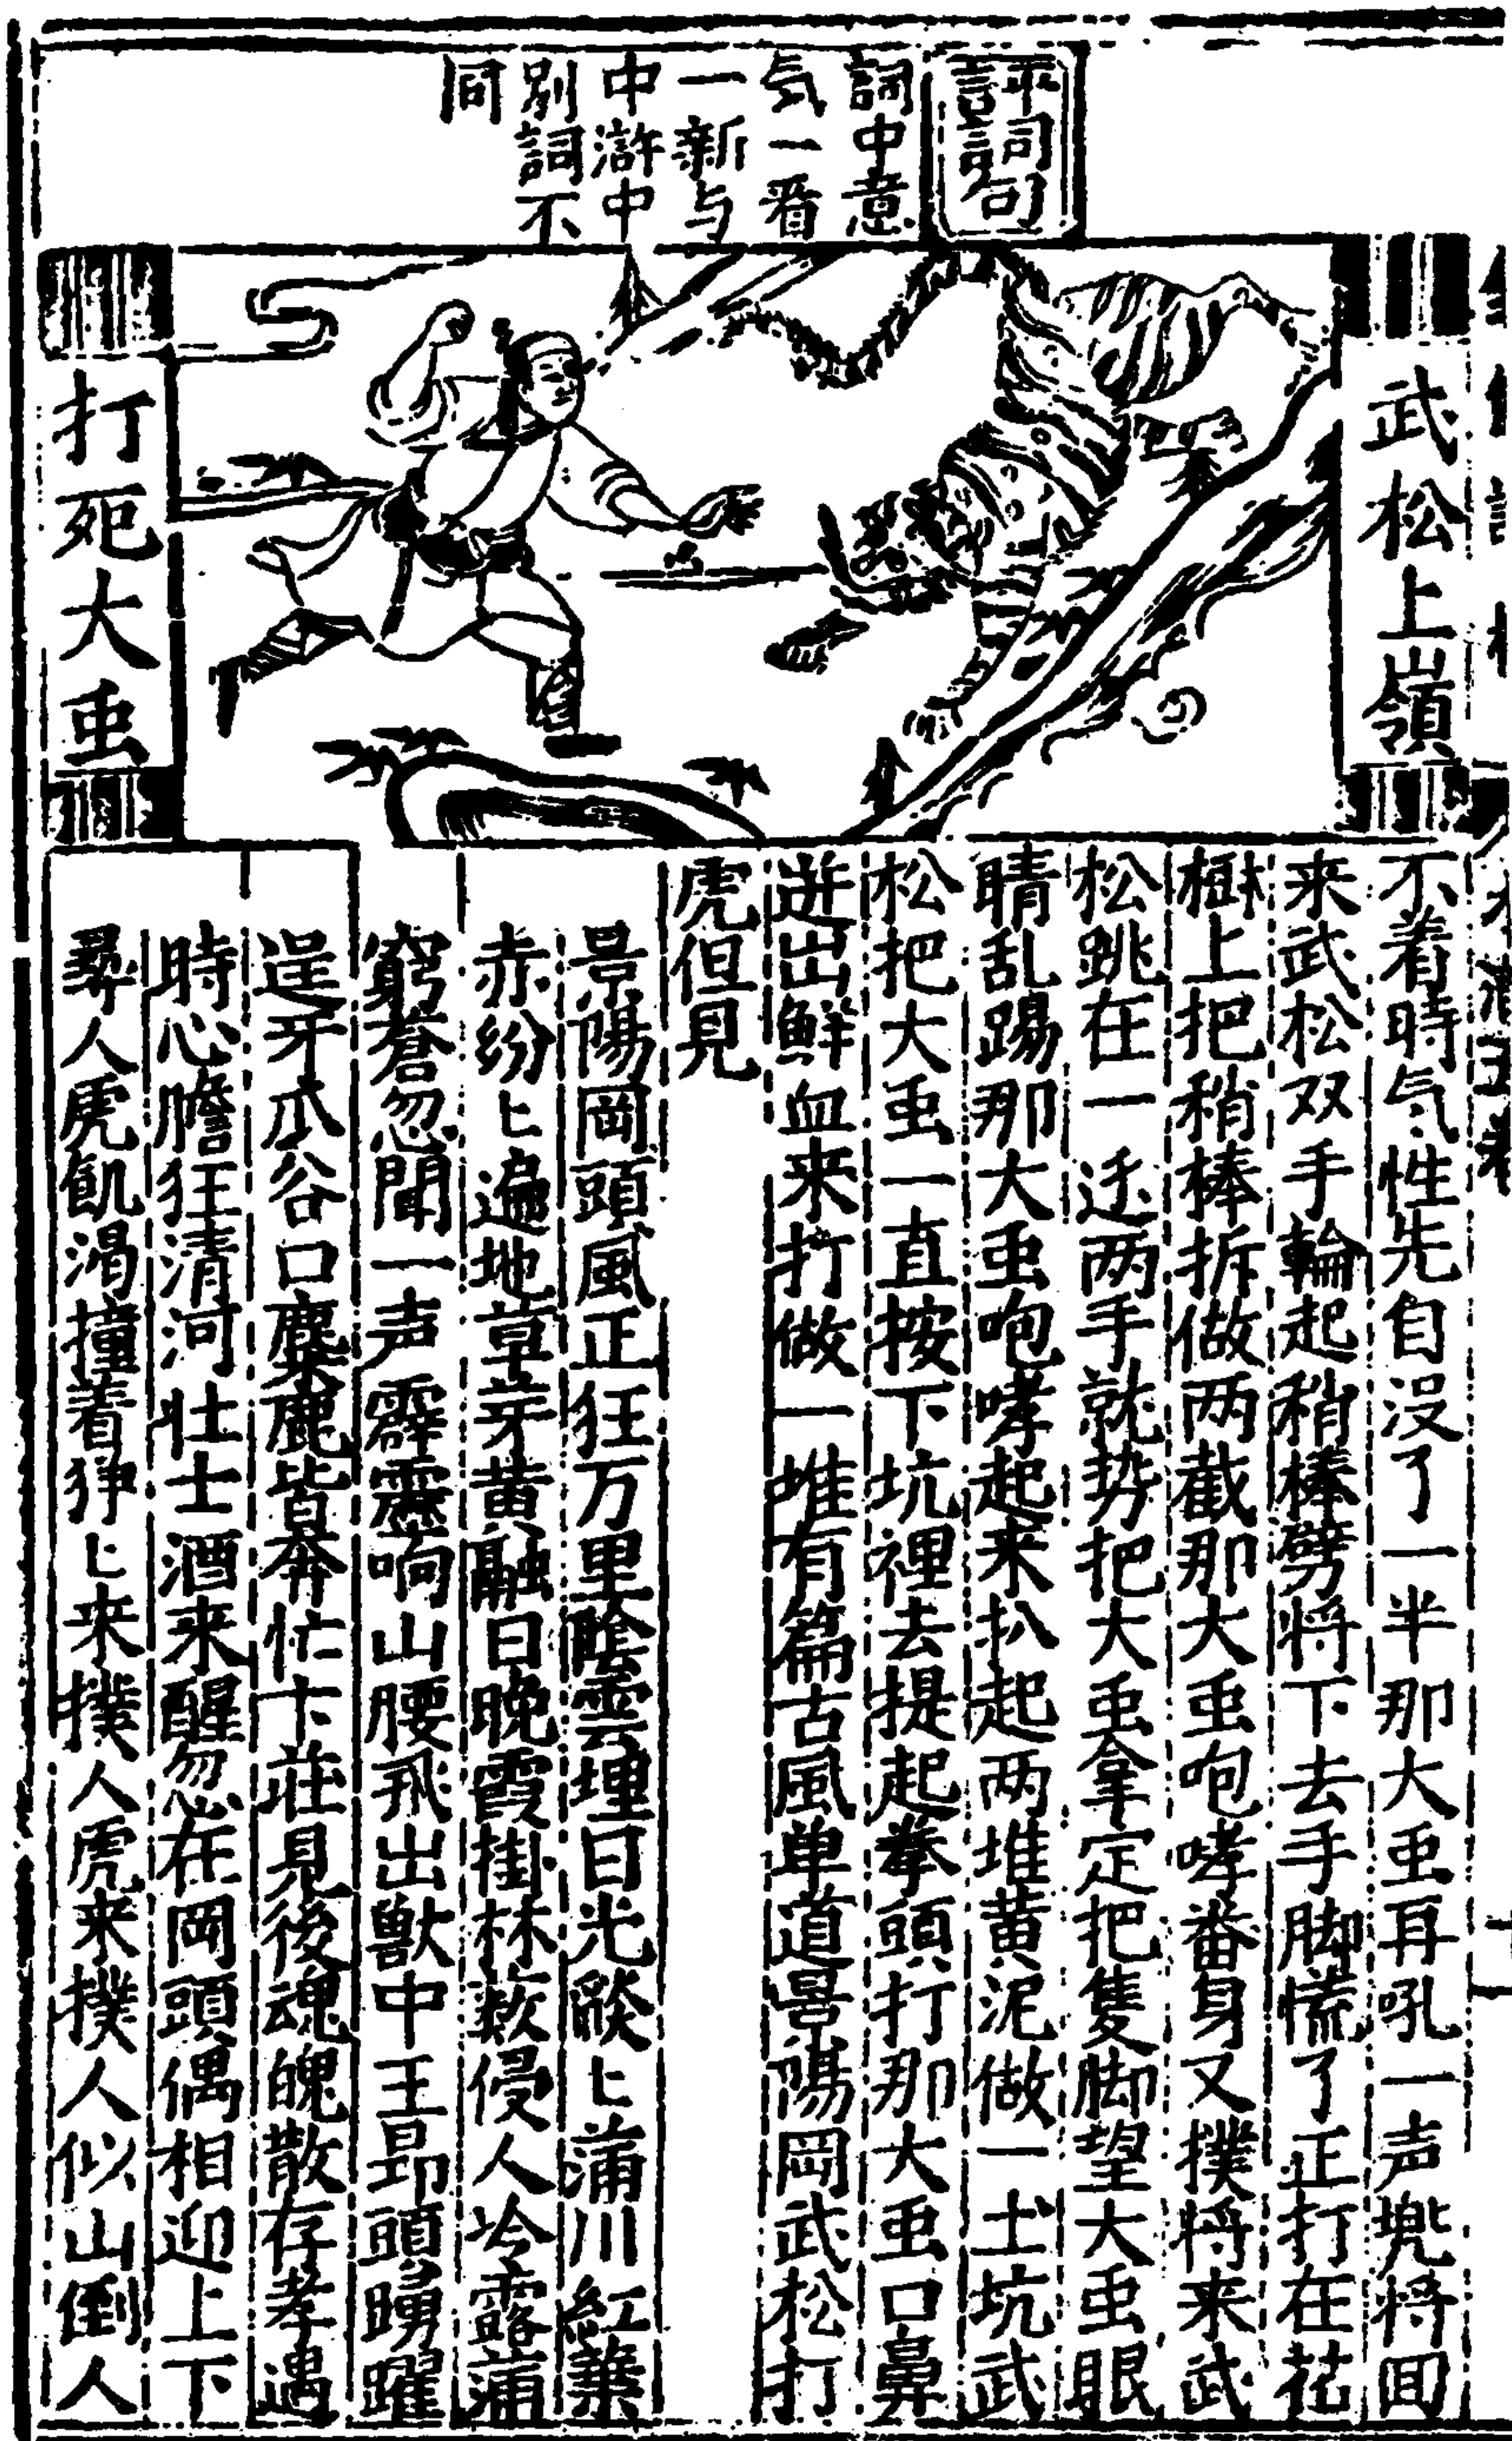 評詞句
詞中意
気一看
一新与
中滸中
別詞不
同
武松上嶺
打死大虫
不着時気性先自没了一半那大虫再吼一声兠将回
来武松双手輪起稍棒劈将下去手脚慌了正打在花
樹上把稍棒拆做两截那大虫咆哮番身又撲将来武
松跳在一边两手就势把大虫拿定把隻脚望大虫眼
睛乱踢那大虫咆哮起来扒起两堆黄泥做一土坑武
松把大虫一直按下坑裡去提起拳頭打那大虫口鼻
迸出鮮血来打做一堆有篇古風单道景陽岡武松打
虎但見
景陽岡頭風正狂万里陰雲埋日光燄〻蒲川紅葉
赤紛〻遍地草芽黄融日晚霞掛林薮侵人冷露蒲
窮蒼忽聞一声霹靂响山腰飛出獣中王昻頭踴躍
逞牙爪谷口麋鹿皆奔忙卞莊見後魂魄散存孝遇
時心膽狂清河壮士酒来醒忽在岡頭偶相迎上下
尋人虎飢渇撞着狰〻来撲人虎来撲人似山倒人